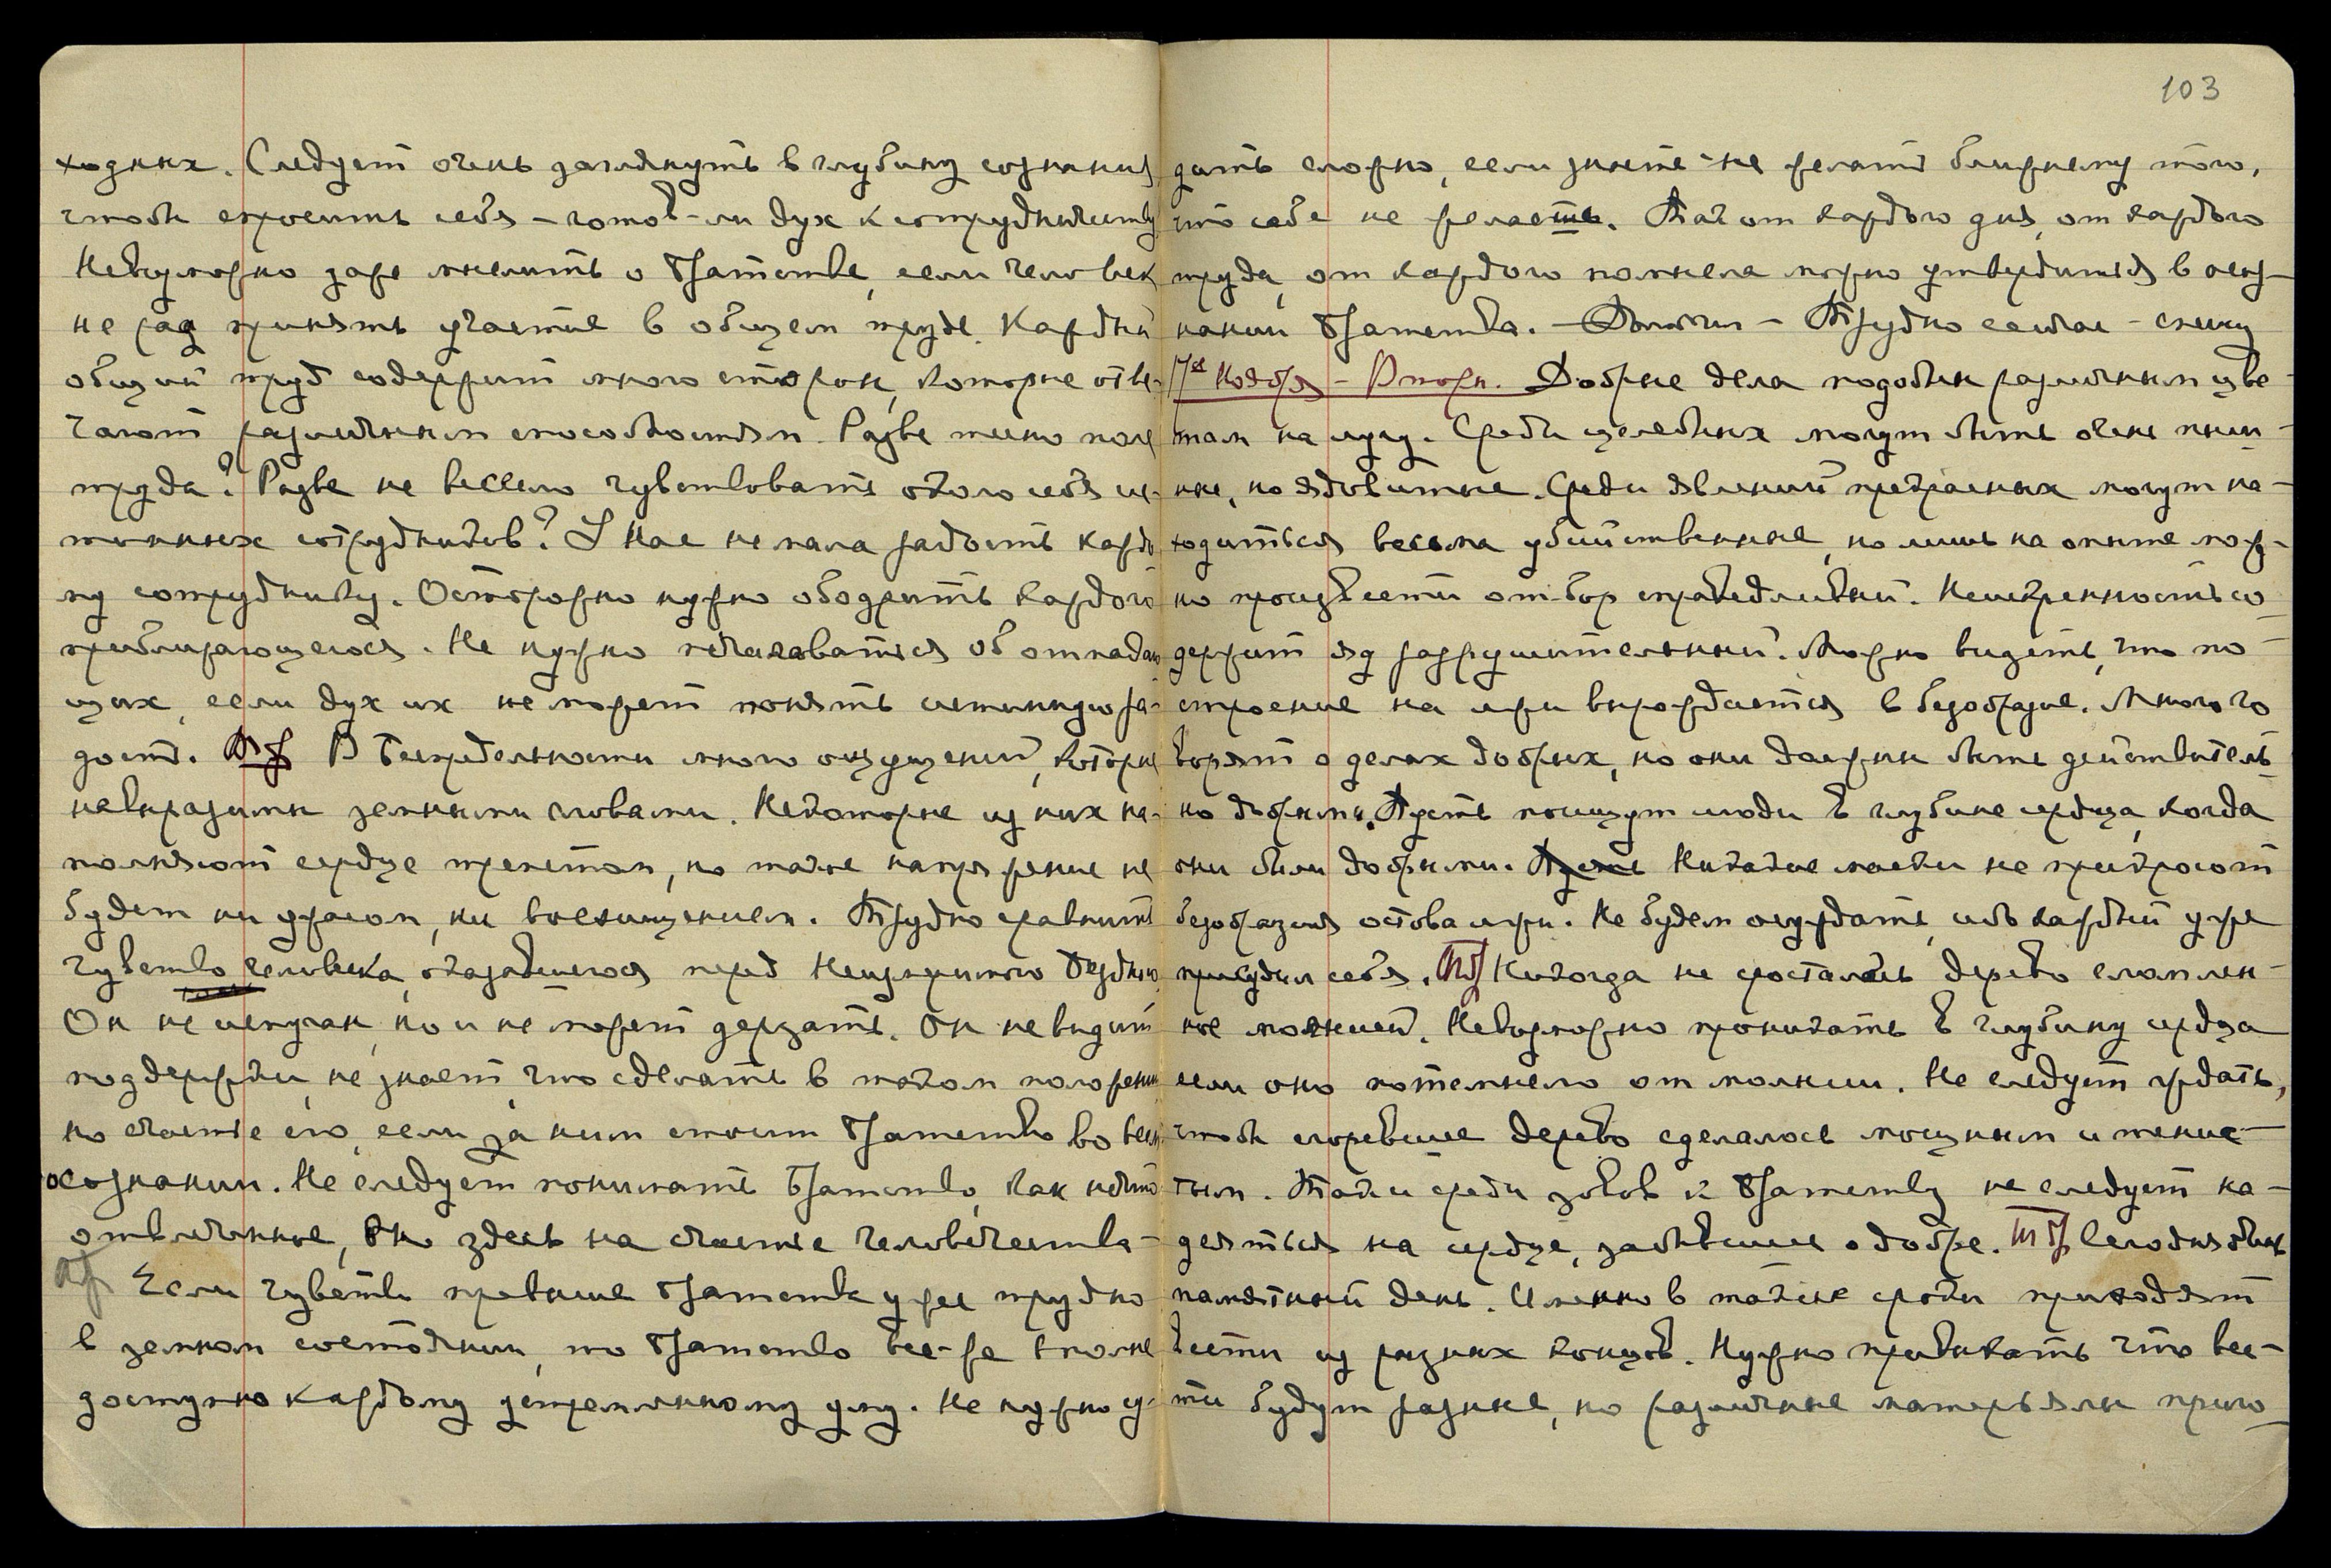 103
ходных. Следует очень заглянуть в глубину сознания,
чтобы спросить себя – готов-ли дух к сотрудничеству
Невозможно даже мыслить о Братстве, если человек
не рад принять участие в общем труде. Каждый
общий труд содержит много сторон, которые отве-
чают различным способностям. Разве тесно поле
труда? Разве не весело чувствовать около себя ис-
тинных сотрудников? У Нас не мала радость каждо-
му сотруднику. Осторожно нужно ободрить каждого
приближающегося. Не нужно печаловаться об отпадаю-
щих, если дух их не может понять истинную ра-
дость. Бр В Беспредельности много ощущений, которые
невыразимы земными словами. Некоторые из них на-
полняют сердце трепетом, но такое напряжение не
будет ни ужасом, ни восхищением. Трудно сравнить
чувство человека, оказавшегося перед Неизмеримою Бездною
Он не испуган, но и не может дерзать. Он не видит
поддержки, не знает, что сделать в таком положении
но счастье его, если за ним стоит Братство во всем
осознании. Не следует понимать Братство, как нечто
отвлеченное, Оно здесь на счастье человечества –
Бр Если чувство превыше Братства уже трудно
в земном состоянии, то Братство все-же вполне
доступно каждому устремленному уму. Не нужно су-
дить сложно, если знаете – не желать ближнему того,
что себе не желаете. Так от каждого дня, от каждого
труда, от каждого помысла можно утвердиться в осоз-
нании Братства. – Довольно – Трудно сейчас – спешу
17ое Ноября – Вторн. Добрые дела подобны различным цве-
там на лугу. Среди целебных могут быть очень пыш-
ные, но ядовитые. Среди явлений прекрасных могут на-
ходиться весьма убийственные, но лишь на опыте мож-
но произвести отбор справедливый. Неискренность со-
держит яд разрушительный. Можно видеть, что по-
строение на лжи вырождается в безобразие. Много го-
ворят о делах добрых, но они должны быть действитель-
но добрыми. Пусть поищут люди в глубине сердца, когда
они были добрыми. Никакие маски не прикроют
безобразия остова лжи. Не будем осуждать, ибо каждый уже
присудил себя. Бр Никогда не срасталось дерево спаплен-
ное молнией. Невозможно проникать в глубину сердца
если оно потемнело от молнии. Не следует ждать,
чтобы сгоревшее дерево сделалось мощным и тенис-
тым. Так и среди зовов к Братству не следует на-
деяться на сердце, забывшее о добре. Бр Сегодня был
памятный день. Именно в такие сроки приходят
вести из разных концов. Нужно привыкать что вес-
ти будут разные, но различные матерьялы приго-